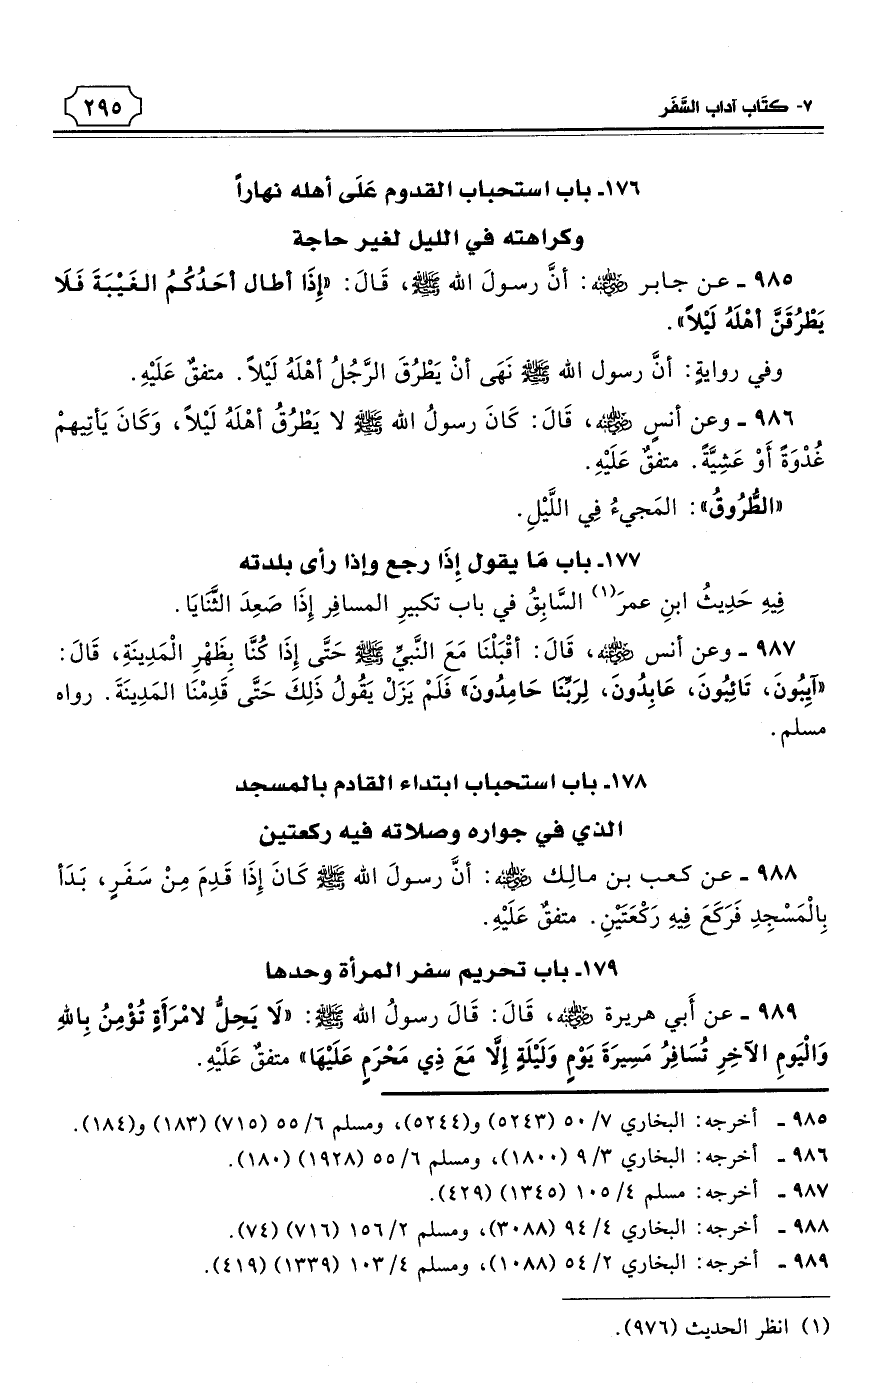 ٧- كتَاب آداب السَّفَر
٢٩٥
١٧٦ـ باب استحباب القدوم عَلَى أهله نهاراً
وكراهته في الليل لغير حاجة
٩٨٥ ـ عن جابر رضي الله عنه: أنَّ رسولَ الله ﷺ، قَالَ: «إِذَا أطال أحَدُكُمُ الغَيْبَةَ فَلَا
يَطْرُقَنَّ أهْلَهُ لَيْلاً».
وفي روايةٍ: أنَّ رسول الله ﷺ نَهَى أنْ يَطْرُقَ الرَّجُلُ أهْلَهُ لَيْلاً. متفقٌ عَلَيْهِ.
٩٨٦ ـ وعن أنسٍ رضي الله عنه، قَالَ: كَانَ رسولُ الله ﷺ لا يَطْرُقُ أهْلَهُ لَيْلاً، وَكَانَ يَأتِيهمْ
غُدْوَةً أوْ عَشِيَّةً. متفقٌ عَلَيْهِ.
«الطُّرُوقُ»: المَجيءُ فِي اللَّيْلِ.
١٧٧ـ باب مَا يقول إِذَا رجع وإذا رأى بلدته
فِيهِ حَدِيثُ ابنِ عمرَ(١) السَّابِقُ في باب تكبيرِ المسافِر إِذَا صَعِدَ الثَّنَايَا.
٩٨٧ ـ وعن أنس رضي الله عنه، قَالَ: أقْبَلْنَا مَعَ النَّبيِّ ﷺ حَتَّى إِذَا كُنَّا بِظَهْرِ الْمَدِينَةِ، قَالَ:
«آيِبُونَ، تَائِبُونَ، عَابِدُونَ، لِرَبِّنَا حَامِدُونَ» فَلَمْ يَزَلْ يَقُولُ ذَلِكَ حَتَّى قَدِمْنَا المَدِينَةَ. رواه
مسلم.
١٧٨ـ باب استحباب ابتداء القادم بالمسجد
الذي في جواره وصلاته فيه ركعتين
٩٨٨ ـ عن كعب بن مالِك رضي الله عنه: أنَّ رسولَ الله ﷺ كَانَ إِذَا قَدِمَ مِنْ سَفَرٍ، بَدَأ
بِالْمَسْجِدِ فَرَكَعَ فِيهِ رَكْعَتَيْنِ. متفقٌ عَلَيْهِ.
١٧٩ـ باب تحريم سفر المرأة وحدها
٩٨٩ ـ عن أَبي هريرة رضي الله عنه، قَالَ: قَالَ رسولُ الله ﷺ: «لَا يَحِلُّ لامْرَأَةٍ تُؤْمِنُ بِاللهِ
وَالْيَومِ الآخِرِ تُسَافِرُ مَسِيرَةَ يَوْمٍ وَلَيْلَةٍ إِلَّا مَعَ ذِي مَحْرَمٍ عَلَيْهَا» متفقٌ عَلَيْهِ.
٩٨٥ ـ أخرجه: البخاري ٧/ ٥٠ (٥٢٤٣) و(٥٢٤٤)، ومسلم ٦/ ٥٥ (٧١٥) (١٨٣) و(١٨٤).
٩٨٦ ـ أخرجه: البخاري ٣/ ٩ (١٨٠٠)، ومسلم ٦/ ٥٥ (١٩٢٨) (١٨٠).
٩٨٧ ـ أخرجه: مسلم ٤/ ١٠٥ (١٣٤٥) (٤٢٩).
٩٨٨ ـ أخرجه: البخاري ٤/ ٩٤ (٣٠٨٨)، ومسلم ٢/ ١٥٦ (٧١٦) (٧٤).
٩٨٩ ـ أخرجه: البخاري ٢/ ٥٤ (١٠٨٨)، ومسلم ٤/ ١٠٣ (١٣٣٩) (٤١٩).
(١) انظر الحديث (٩٧٦).